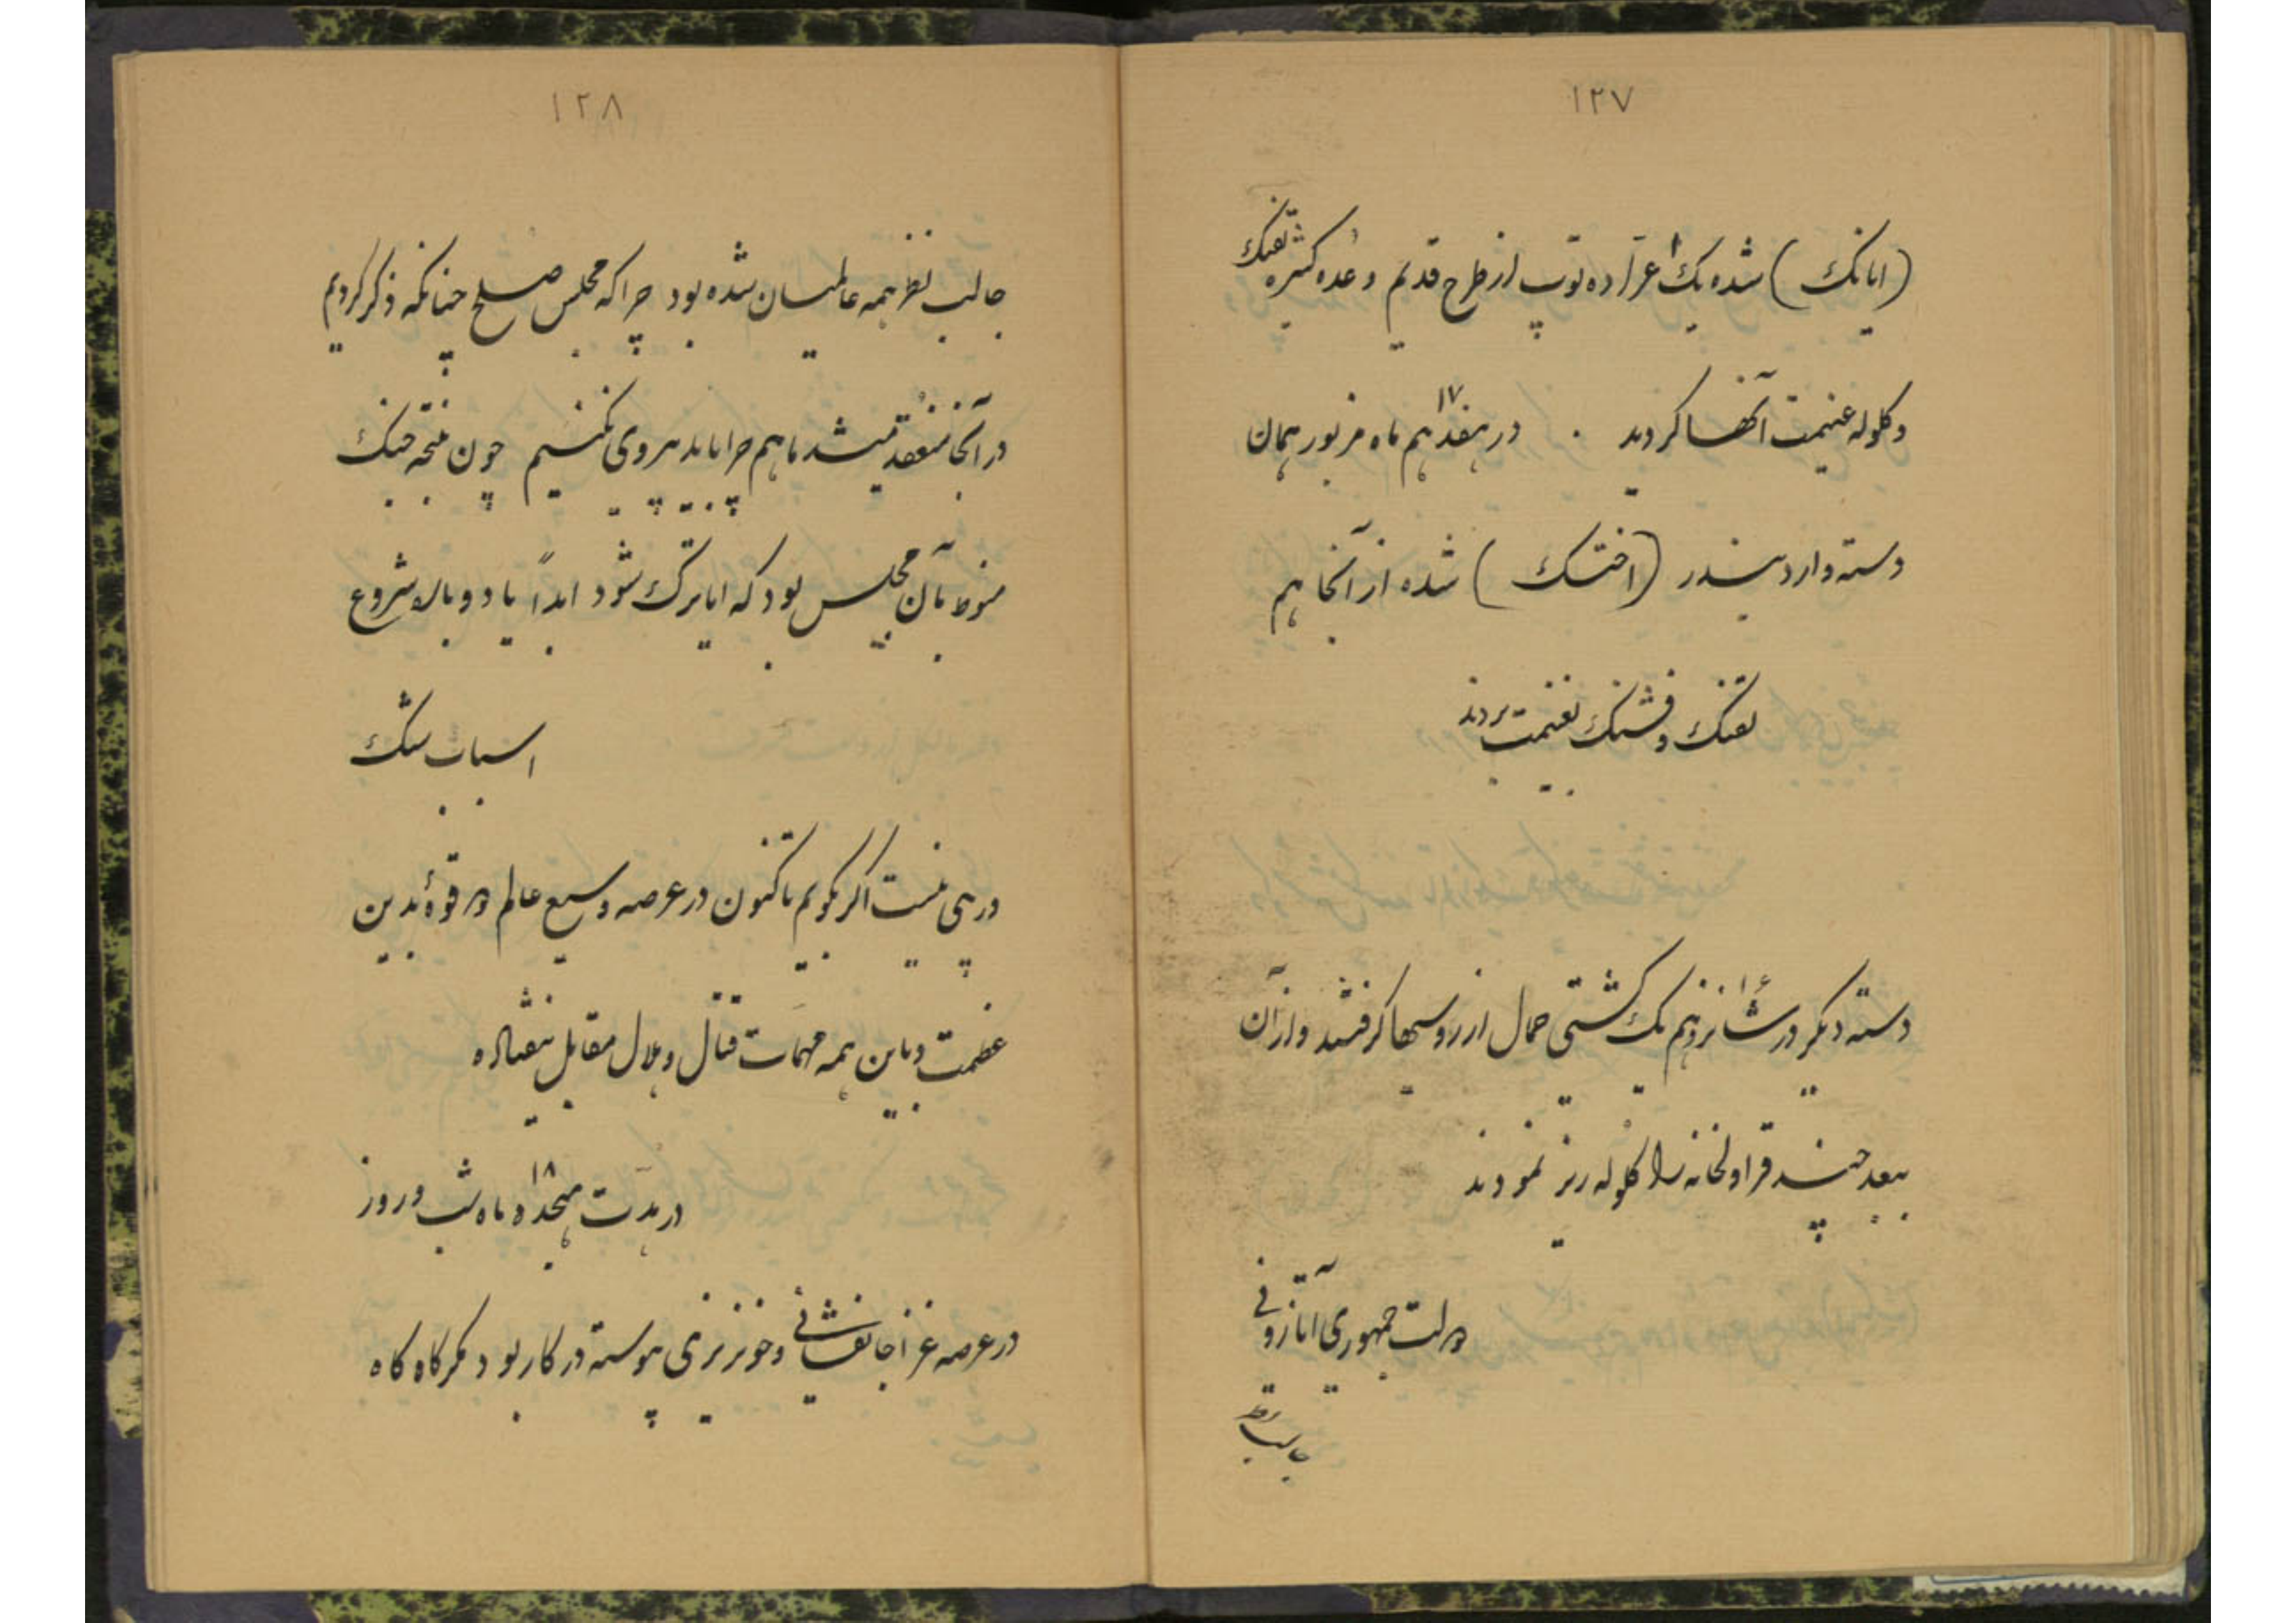 ۱۲۷
(ایانک) شده یک ۱ عراده توپ از طرح قدیم و عده کثیره تفنک
و کلوله غنیمت آنها کردید . در هفدهم ۱۷ ماه مزبور همان
دسته وارد بندر (اختسک) شده از آنجا هم
تفنک و فشنک بغنیمت بردند
دسته دیکر در شانزدهم یک کشتی حمال از روسیها کرفتند و از آن
ببعد چند قراولخانه را کلوله ریز نمودند
دولت جمهوری آتازونی
جالب نظر
۱۲۸
جالب نظر همه عالمیان شده بود چرا که مجلس صلح چنانکه ذکر کردیم
در آنجا منعقد میشد ما هم چرا باید پیروی نکنیم چون نتیجه جنک
منوط بآن مجلس بود که ایا ترک شود ابداً یا دوباره شروع
اسباب شک
در پی نیست اکر بکویم تاکنون در عرصه وسیع عالم دو قوهٔ بدین
عظمت و باین همه مهمات قتال و جلال مقابل نیفتاده
در مدت هیجده ۱۸ ماه شب و روز
در عرصه غزا جانفشانی و خونریزی پیوسته در کار بود مکر کاه کاه